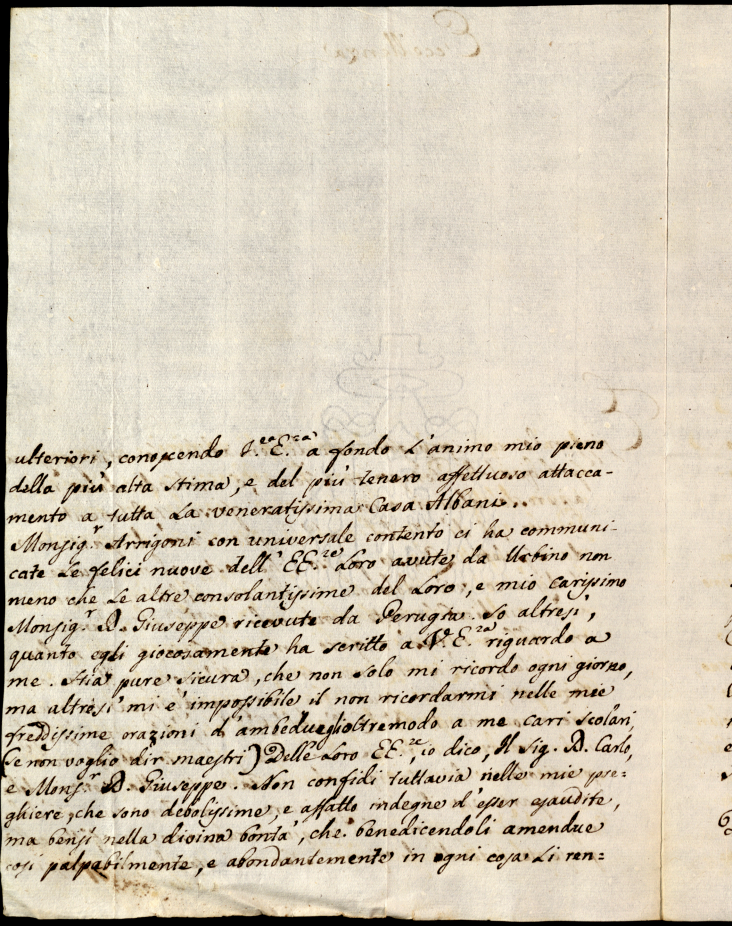 ulteriori, conoscendo V.ea E.za a fondo l'animo mio pieno
della più alta stima, e del più tenero affettuoso attacca-
mento a tutta la veneratissima Casa Albani.
Monsig.r Arrigoni con universale contento ci ha communi-
cate le felici nuove dell' EE.ze Loro avute da Urbino non
meno che le altre consolantissime del Loro, e mio carissimo
Monsig.r D. Giuseppe ricevute da Perugia. So altresì,
quanto egli giocosamente ha scritto a V.E.za riguardo a
me. Stia pure sicura, che non solo mi ricordo ogni giorno,
ma altresì mi è impossibile il non ricordarmi nelle mie
freddissime orazioni d'ambedue gli oltremodo a me cari scolari,
(se non voglio dir maestri) Delle Loro EE.ze, io dico, Il Sig. D. Carlo,
e Mons.r D. Giuseppe. Non confidi tuttavia nelle mie pre=
ghiere, che sono debolissime, e affatto indegne d'esser esaudite,
ma bensì nella divina bontà, che benedicendoli amendue
così palpabilmente, e abondantemente in ogni cosa li ren=